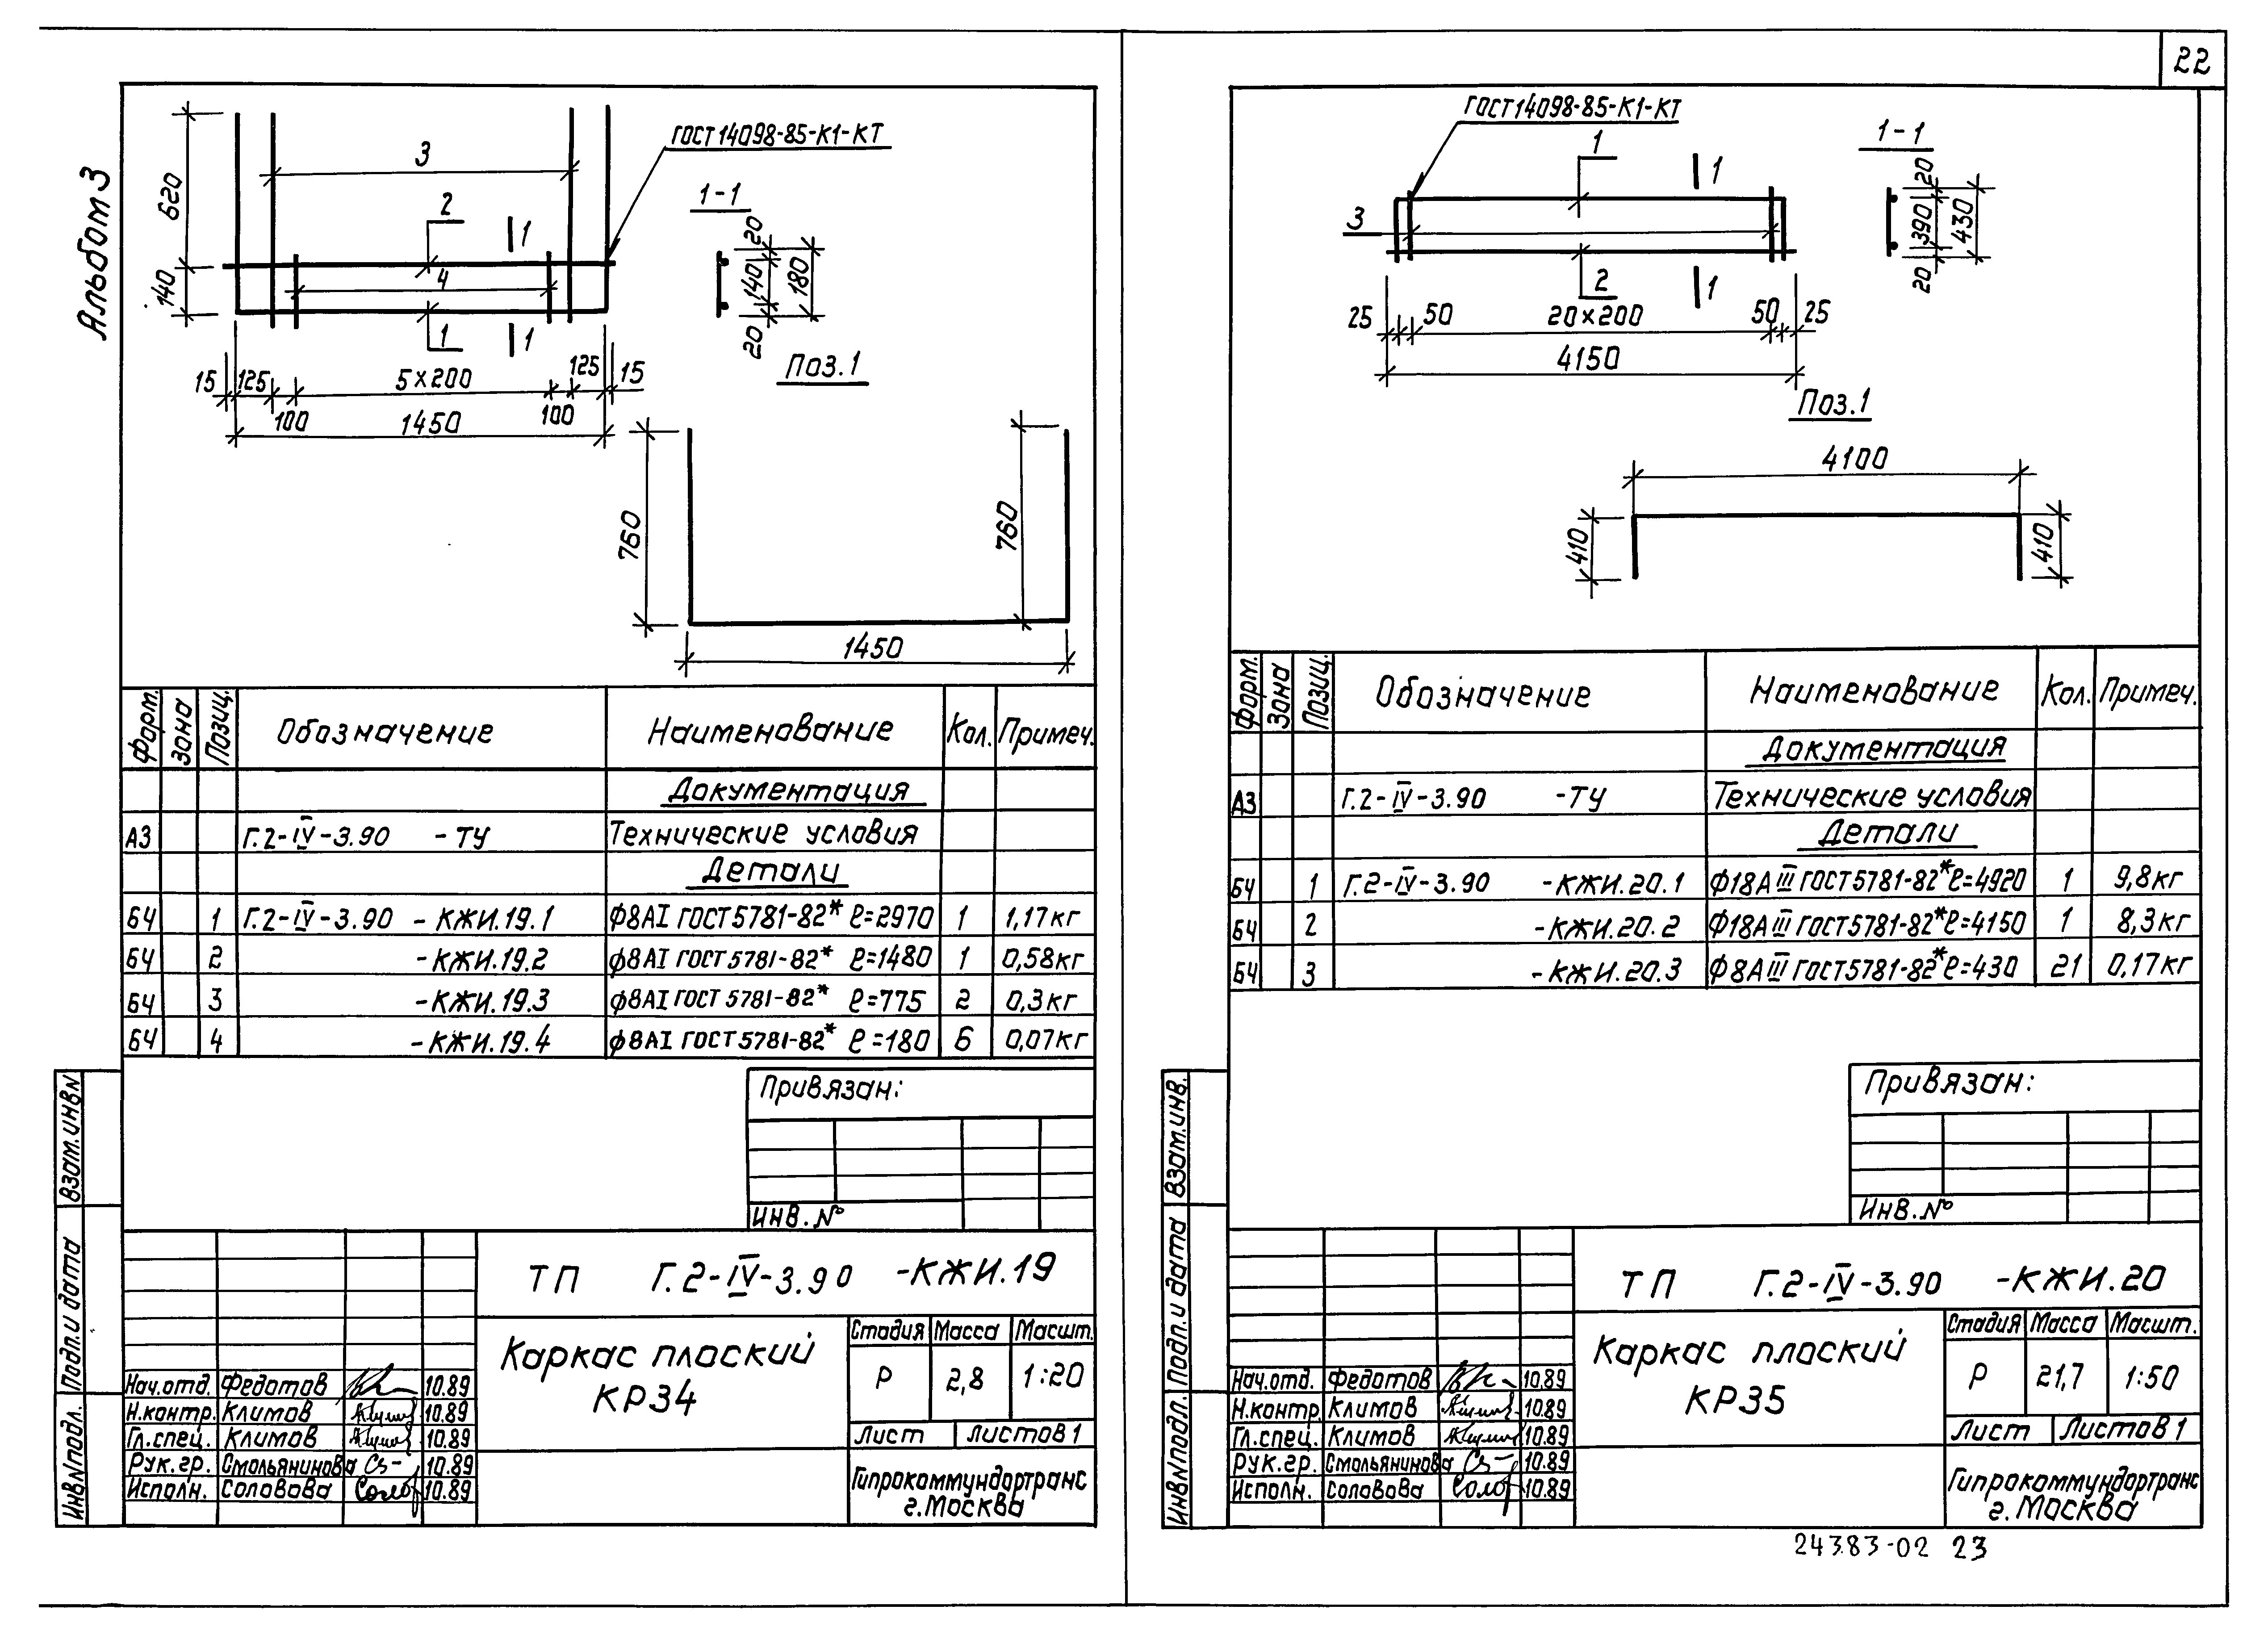 22
Альбом 3
620
140
3
2
1
4
1
1
ГОСТ 14098-85-К1-КТ
1-1
20
140
180
20
15
125
5×200
125
15
100
1450
100
Поз.1
760
760
1450
Форм.
Зона
Позиц.
Обозначение
Наименование
Кол.
Примеч.
Документация
А3 Г.2-IV-3.90 -ТУ Технические условия
Детали
БЧ 1 Г.2-IV-3.90 -КЖИ.19.1 ф8АI ГОСТ 5781-82* ℓ=2970 1 1,17кг
БЧ 2 -КЖИ.19.2 ф8АI ГОСТ 5781-82* ℓ=1480 1 0,58кг
БЧ 3 -КЖИ.19.3 ф8АI ГОСТ 5781-82* ℓ=775 2 0,3кг
БЧ 4 -КЖИ.19.4 ф8АI ГОСТ 5781-82* ℓ=180 6 0,07кг
Привязан:
Инв.№
Взам.инв№
Подп.и дата
Инв№подл.
ТП Г.2-IV-3.90 -КЖИ.19
Каркас плоский
КР34
Стадия Масса Масшт.
Р 2,8 1:20
Лист Листов 1
Гипрокоммундортранс
г.Москва
Нач.отд. Федотов 10.89
Н.контр. Климов 10.89
Гл.спец. Климов 10.89
Рук.гр. Смольянинова 10.89
Исполн. Соловова 10.89
ГОСТ 14098-85-К1-КТ
1
1
3
2
1
25
50
20×200
50
25
4150
1-1
20
390
430
20
Поз.1
4100
410
410
Форм.
Зона
Позиц.
Обозначение
Наименование
Кол.
Примеч.
Документация
А3 Г.2-IV-3.90 -ТУ Технические условия
Детали
БЧ 1 Г.2-IV-3.90 -КЖИ.20.1 ф18АIII ГОСТ 5781-82* ℓ=4920 1 9,8кг
БЧ 2 -КЖИ.20.2 ф18АIII ГОСТ 5781-82* ℓ=4150 1 8,3кг
БЧ 3 -КЖИ.20.3 ф8АIII ГОСТ 5781-82* ℓ=430 21 0,17кг
Привязан:
Инв.№
Взам.инв.
Подп.и дата
Инв№подл.
ТП Г.2-IV-3.90 -КЖИ.20
Каркас плоский
КР35
Стадия Масса Масшт.
Р 21,7 1:50
Лист Листов 1
Гипрокоммундортранс
г.Москва
Нач.отд. Федотов 10.89
Н.контр. Климов 10.89
Гл.спец. Климов 10.89
Рук.гр. Смольянинова 10.89
Исполн. Соловова 10.89
24383-02 23